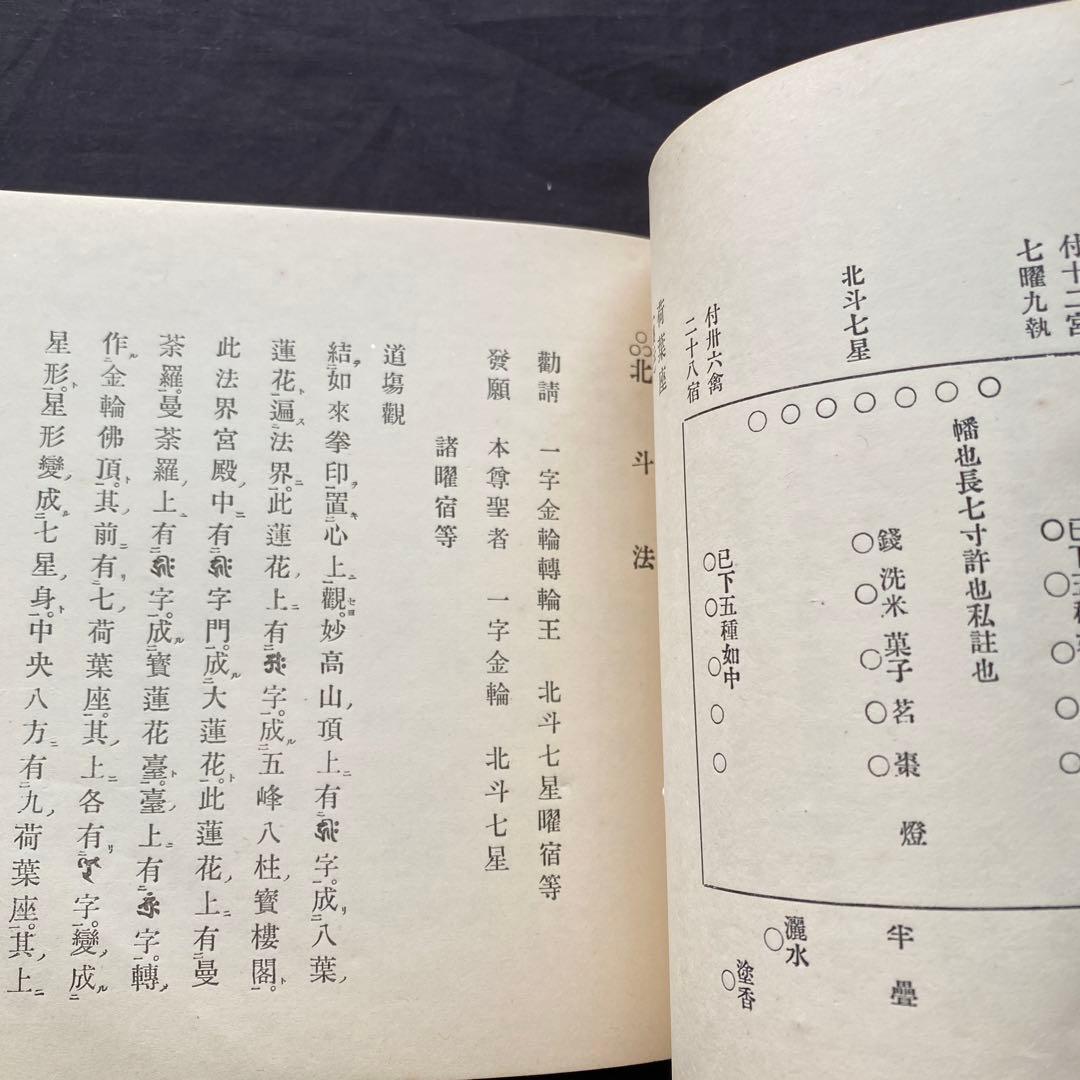 付十二宮
七曜九執
北斗七星
付卅六禽
二十八宿
荷葉座
幡也長七寸許也私註也
錢 洗米 菓子 茗 棗 燈
已下五種如中
半疊
灑水
塗香
北斗法
勸請 一字金輪轉輪王 北斗七星曜宿等
發願 本尊聖者 一字金輪 北斗七星
諸曜宿等
道場觀
結如來拳印置心上觀。妙高山頂上有字。成八葉
蓮花遍法界。此蓮花上有字。成五峰八柱寶樓閣。
此法界宮殿中有字門。成大蓮花。此蓮花上有曼
荼羅。曼荼羅上有字。成寶蓮花臺。臺上有字。轉
作金輪佛頂。其前有七荷葉座。其上各有字。變成
星形。星形變成七星身。中央八方有九荷葉座。其上